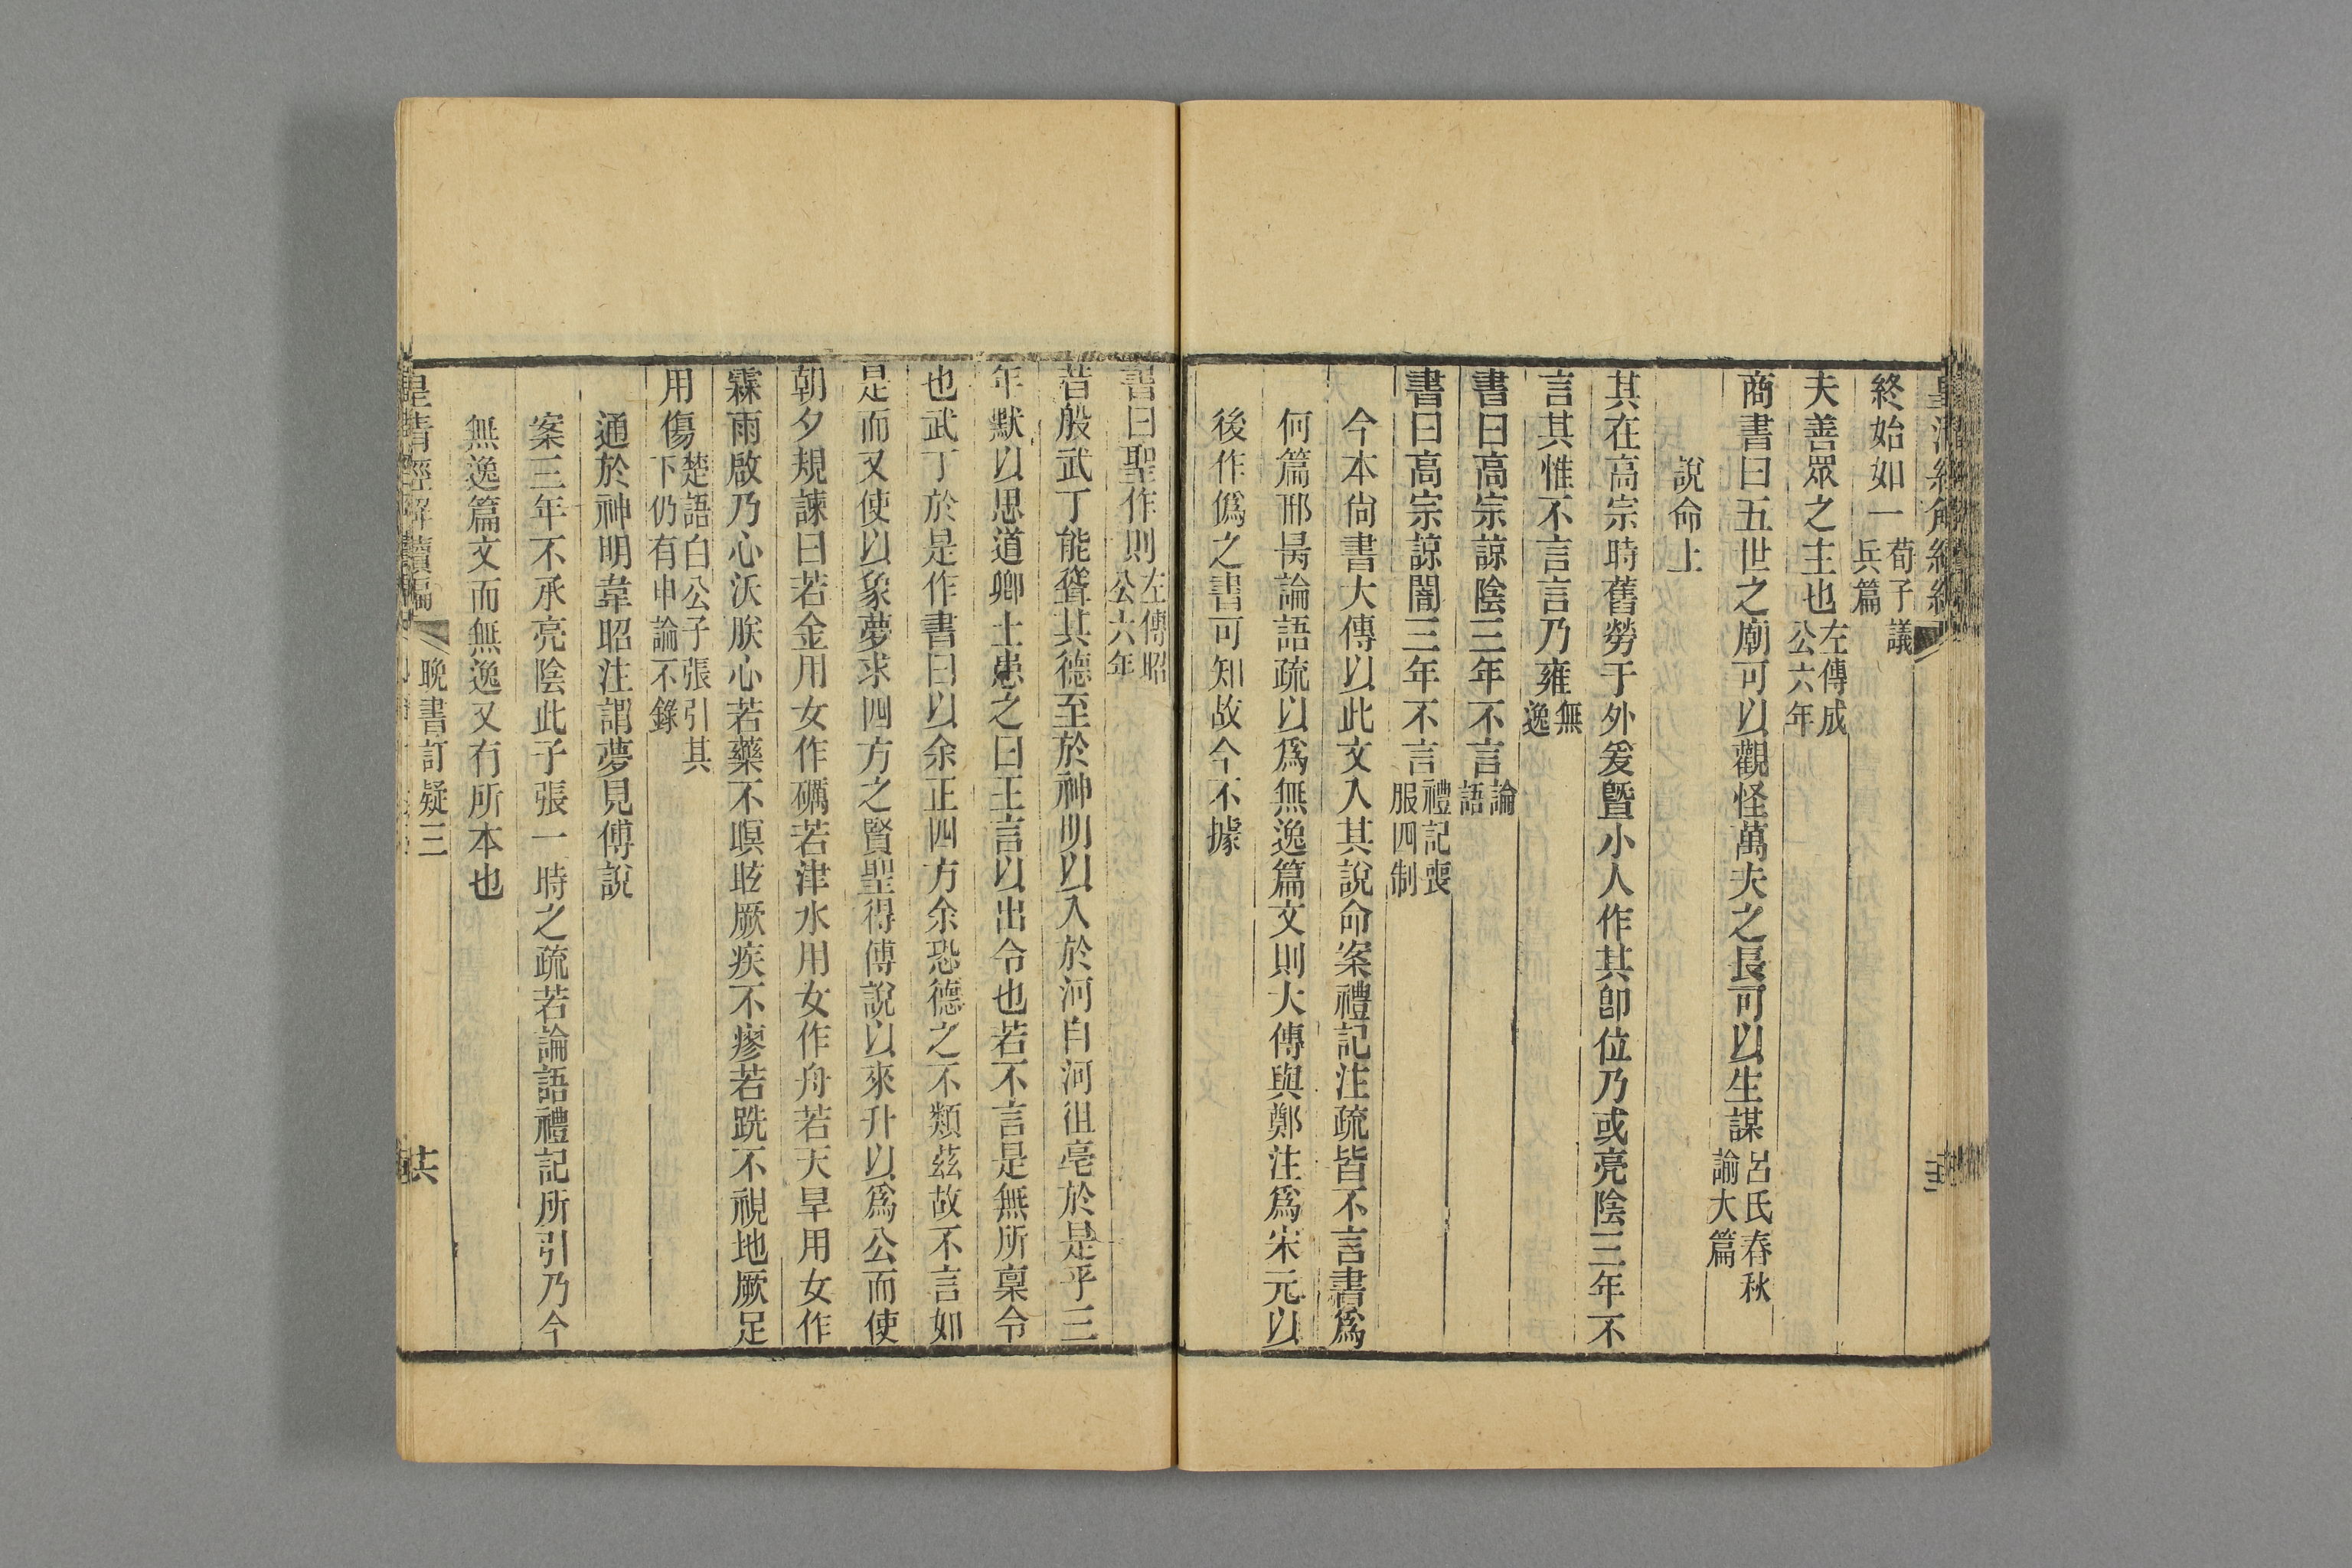 終始如一荀子議兵篇
夫善眾之主也左傳成公六年
商書曰五世之廟可以觀怪萬夫之長可以生謀呂氏春秋諭大篇
說命上
其在高宗時舊勞于外爰曁小人作其卽位乃或亮陰三年不
言其惟不言言乃雍無逸
書曰高宗諒陰三年不言論語
書曰高宗諒闇三年不言禮記喪服四制
今本尚書大傳以此文入其說命案禮記注疏皆不言書爲
何篇邢昺論語疏以爲無逸篇文則大傳與鄭注爲宋元以
後作僞之書可知故今不據
書曰聖作則左傳昭公六年
昔殷武丁能聳其德至於神明以入於河自河徂亳於是乎三
年默以思道卿士患之曰王言以出令也若不言是無所稟令
也武丁於是作書曰以余正四方余恐德之不類茲故不言如
是而又使以象夢求四方之賢聖得傅說以來升以爲公而使
朝夕規諫曰若金用女作礪若津水用女作舟若天旱用女作
霖雨啟乃心沃朕心若藥不瞑眩厥疾不瘳若跣不視地厥足
用傷楚語白公子張引其下仍有申論不錄
通於神明韋昭注謂夢見傅說
案三年不承亮陰此子張一時之疏若論語禮記所引乃今
無逸篇文而無逸又有所本也
皇清經解續編
晚書訂疑三